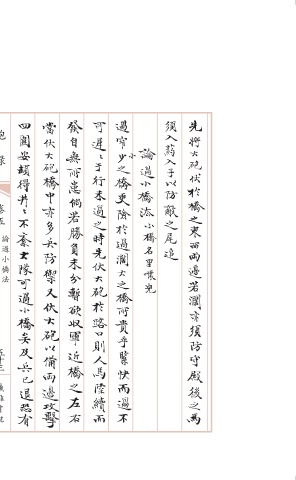 先將大砲伏於橋之東西兩邊若濶者須防守殿後之馬
須入葯入子以防敵之尾追
論過小橋法小橋名里懷兒
過窄少之橋更險於過濶大之橋所貴乎緊快而過不
可遲遲于行未過之時先伏大砲於路口則人馬陸續而
發自無所患倘若勝負未分暫欲收軍近橋之左右
當伏大砲橋中亦多兵防禦又伏大砲以備兩邊攻擊
四圍安頓得井井不紊大隊可過小橋矣及兵已退恐有
論過小橋法